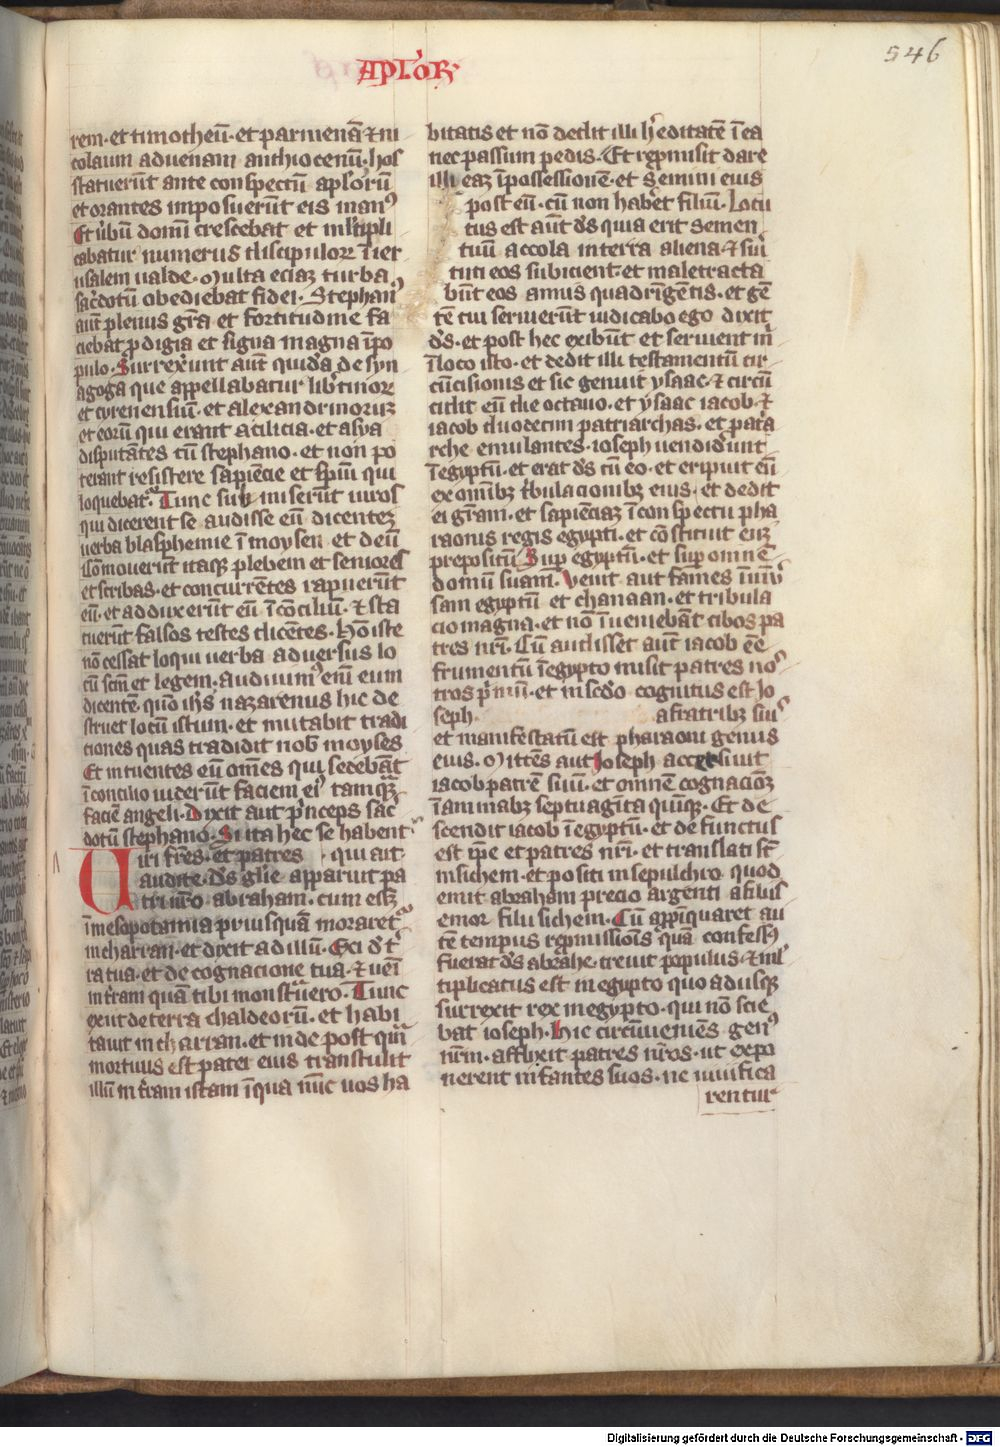 546
Aplor
rem · et timotheū · et parmenā ⁊ ni
colaum aduenam anthiocenū · hos
statuerūt ante conspectū aplorū
et orantes imposuerūt eis manꝰ
Et ūbū domī crescebat et mltipli
cabatur numerus discipulor ī ier
usalem ualde · Multa eciaz turba
sacdotū obediebat fidei · Stephanꝰ
aūt plenus gra et fortitudine fa
ciebat prodigia et signa magna ī po
pulo · Surrexerunt aūt quidā de syn
agoga que appellabatur libtinorꝝ
et cyrenensiū · et alexandrinorum
et eorū qui erant a cilicia · et asya
disputātes cū stephano · et non po
terant resistere sapiēcie et spiui qui
loquebatꝰ · Tunc submiserūt uiros
qui dicerent se audisse eū dicentez
uerba blasphemie ī moysen et deū
Cōmouerūt itaqꝫ plebem et seniores
et scribas · et concurrētes rapuerūt
eū · et adduxerūt eū ī cōciliū · ⁊ sta
tuerūt falsos testes dicētes · Hō iste
nō cessat loqui uerba aduersus lo
cū scm et legem · audiuimꝰ enī eum
dicentē quō ihs nazarenus hic de
struet locū istum · et mutabit tradi
ciones quas tradidit nob moyses
Et intuentes eū om̄es qui sedebāt
ī concilio uiderūt faciem eiꝰ tamqꝫ
faciē angeli · Dixit aut pnceps sac
dotū stephano · Si ita hec se habent
Uiri fres · et patres · qui ait
audite · Ds glie apparuit pa
tri nro abraham · cum esꝫ
ī mesopotamia priusquā moraretꝰ
in charran · et dixit ad illū · Exi d t
ra tua · et de cognacione tua · ⁊ uēi
in tram quā tibi monstrauero · Tunc
exiit de terra chaldeorū · et habi
tauit in charran · et inde post qm
mortuus est pater eius transtulit
illū in tram istam ī qua nūc uos ha
bitatis et nō dedit illi heditatē ī ea
nec passum pedis · Et repmisit dare
illi eaz ī possessionē · et semini eius
post eū · cū non haberet filiū · Locu
tus est aūt ds quia erit semen
tuū accola in terra aliena · ⁊ sui
tuti eos subicient et maletracta
būt eos annis quadrīgētis · et gē
tē cui seruierūt iudicabo ego dixit
ds · et post hec exibūt et seruient m
ī loco isto · et dedit illi testamentū cir
cūcisionis et sic genuit ysaac · ⁊ circū
cidit eū die octauo · et ysaac iacob · ⁊
iacob duodecim patriarchas · et patria
rche emulantes · ioseph uendidūnt
ī egyptū · et erat ds cū eo · et eripuit eū
ex omībꝫ tbulacionibꝫ eius · et dedit
ei gram · et sapiēciaz ī conspectu pha
raonis regis egypti · et cōstituit euꝫ
prepositū sup egyptū · et sup omnē
domū suam · Venit aut fames ī uniu
sam egyptū et chanaan · et tribula
cio magna · et nō ī ueniebāt cibos pa
tres nri · Cū audisset aūt iacob ēē
frumentū ī egypto misit patres nos
tros pmū · et in scdo cognitus est Jo
seph a fratribꝫ suis
et manifestatū est pharaoni genus
eius · Mittēs aut Joseph accersiuit
iacob patrē suū · et omnē cognacioꝫ
ī animabꝫ septuagīta quīqꝫ · Et de
scendit iacob ī egyptū · et defunctus
est ipe et patres nri · et translati st
in sichem · et positi in sepulchro quod
emit abraham precio argenti a filiis
emor filii sichem · Cū appīquaret au
tē tempus repmissiōis quā confessꝰ
fuerat ds abrahe · creuit populus · ⁊ ml
tiplicatus est in egypto quo adusqꝫ
surrexit rex in egypto · qui nō scie
bat ioseph · Hic circūueniēs genꝰ
nrm · afflixit patres nros · ut expo
nerent infantes suos · ne uiuifica
rentur
Digitalisierung gefördert durch die Deutsche Forschungsgemeinschaft - DFG